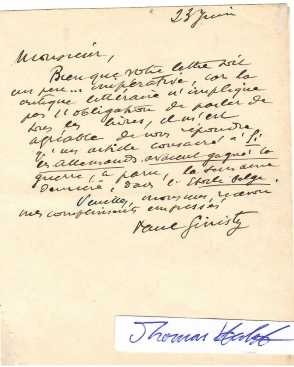 23 Juin
Monsieur,
Bien que votre lettre soit
un peu... impérative, car la
critique littéraire n'implique
pas l'obligation de parler de
tous les livres, il m'est
agréable de vous répondre
qu'un article consacré à Si
les allemands avaient gagné la
guerre, a paru, la semaine
dernière, dans l'Etoile belge.
Veuillez, monsieur, recevoir
mes compliments empressés
Paul Ginisty
Thomas